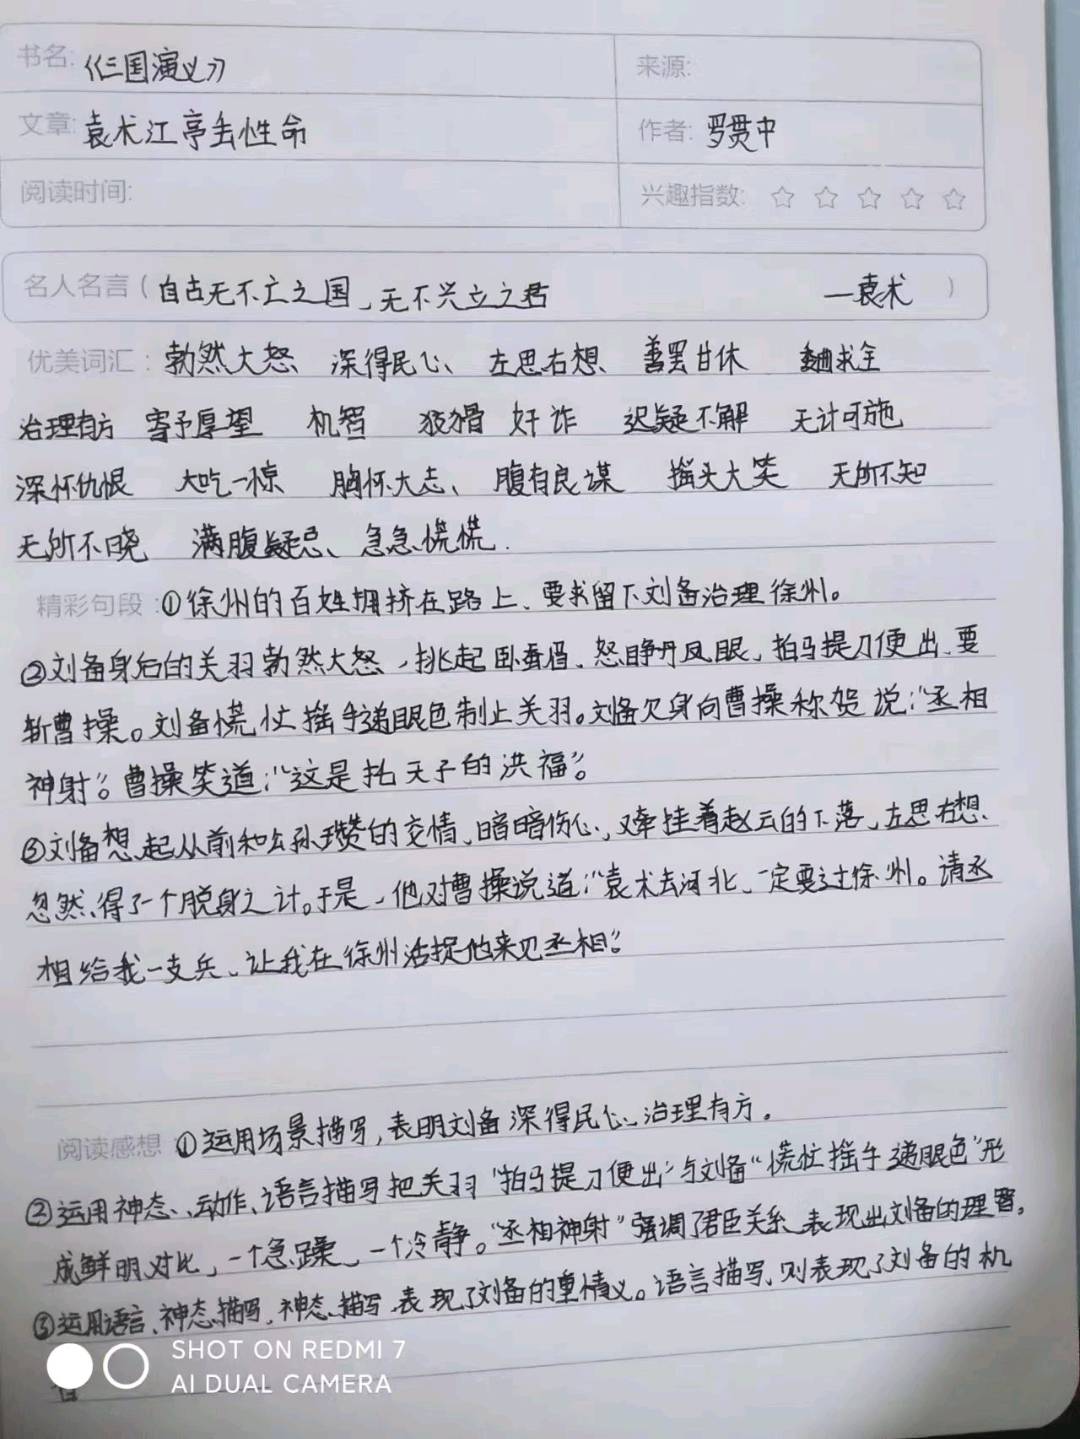 书名: 《三国演义》 来源:
文章: 袁术江亭去性命 作者: 罗贯中
阅读时间: 兴趣指数: ☆ ☆ ☆ ☆ ☆
名人名言（自古无不亡之国、无不兴立之君 —袁术）
优美词汇: 勃然大怒 深得民心、左思右想、善罢甘休 求全
治理有方 寄予厚望 机智 狡猾 奸诈 迟疑不解 无计可施
深怀仇恨 大吃一惊 胸怀大志、腹有良谋 摇头大笑 无所不知
无所不晓 满腹疑忌、急急慌慌.
精彩句段:①徐州的百姓拥挤在路上、要求留下刘备治理徐州。
②刘备身后的关羽勃然大怒，挑起卧蚕眉、怒睁丹凤眼、拍马提刀便出、要
斩曹操。刘备慌忙摇手递眼色制止关羽。刘备欠身向曹操称贺说:“丞相
神射”。曹操笑道:“这是托天子的洪福”。
③刘备想起从前和公孙瓒的交情、暗暗伤心、又牵挂着赵云的下落、左思右想、
忽然得了一个脱身之计。于是，他对曹操说道:“袁术去河北、一定要过徐州。请丞
相给我一支兵、让我在徐州活捉他来见丞相”。
阅读感想 ①运用场景描写,表明刘备深得民心、治理有方。
②运用神态、动作、语言描写把关羽“拍马提刀便出”与刘备“慌忙摇手递眼色”形
成鲜明对比，一个急躁，一个冷静。“丞相神射”强调了君臣关系、表现出刘备的理智。
③运用语言、神态描写、神态描写、表现了刘备的重情义。语言描写、则表现了刘备的机
智
SHOT ON REDMI 7
AI DUAL CAMERA